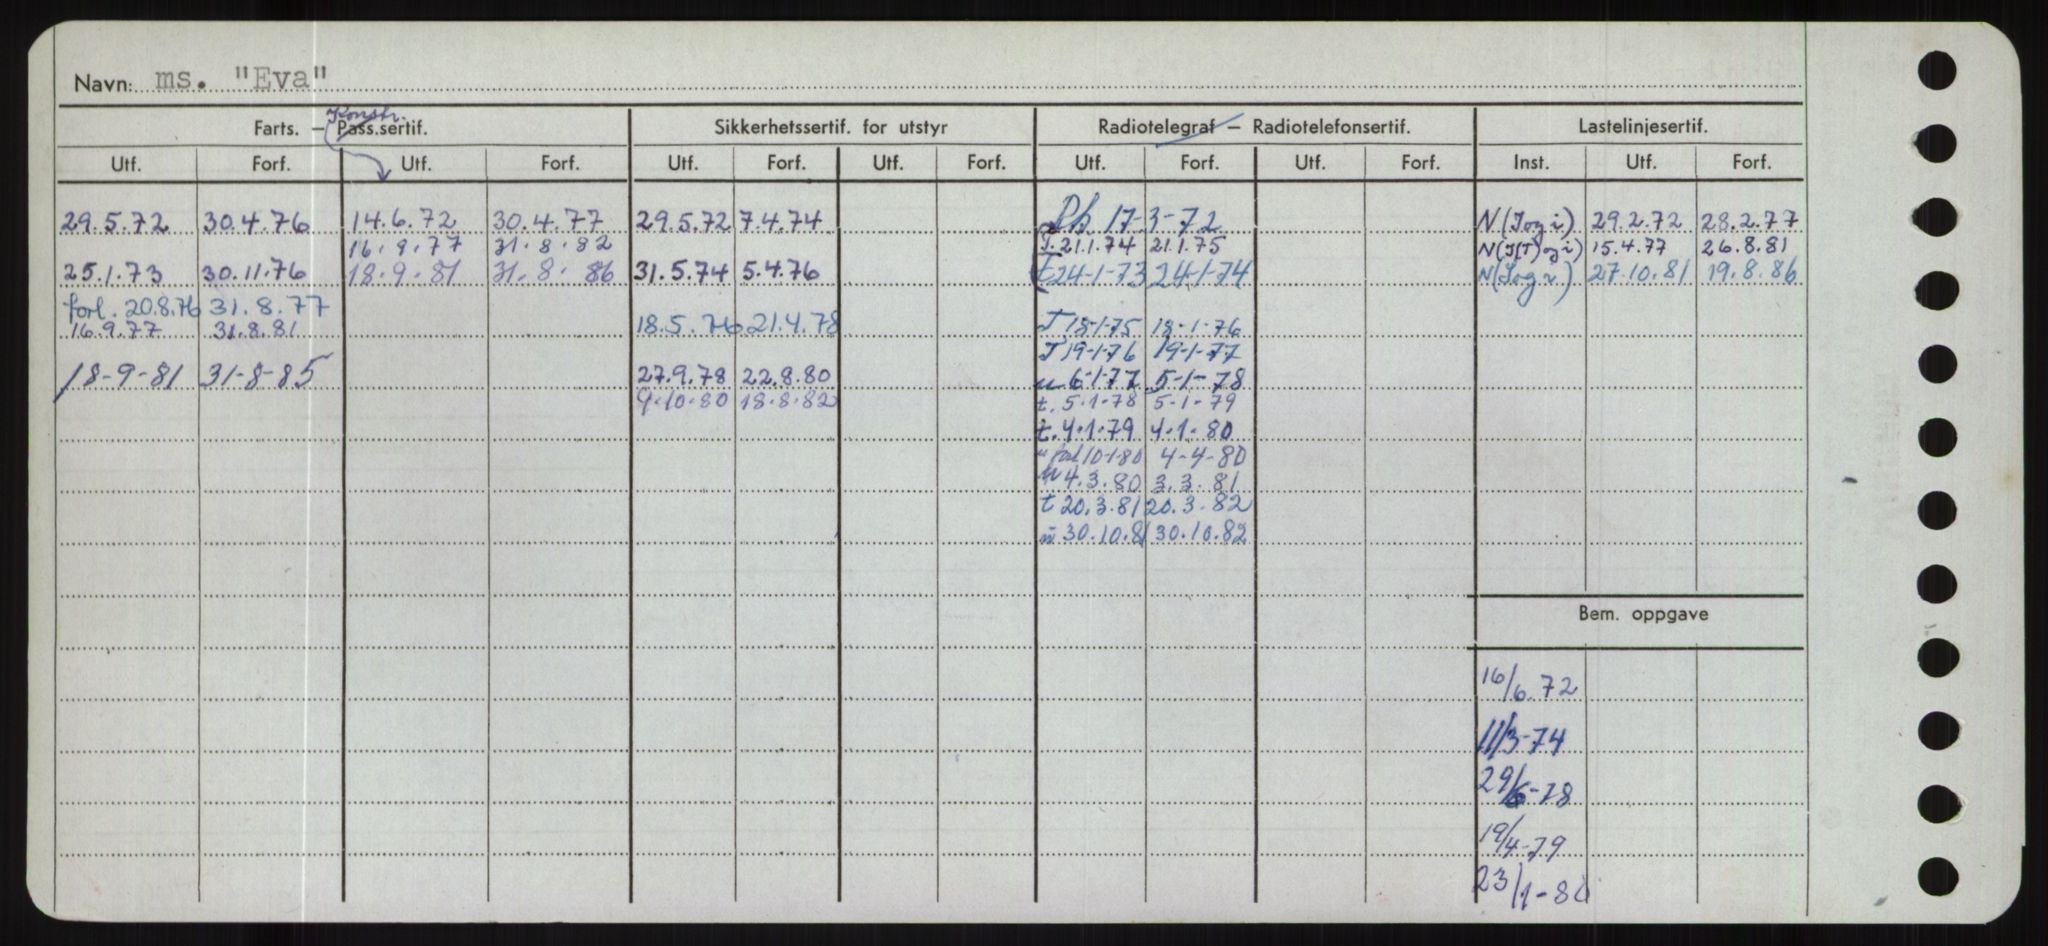 Navn: ms. "Eva"
Konstr.
Farts. – Pass.sertif. Sikkerhetssertif. for utstyr Radiotelegraf – Radiotelefonsertif. Lastelinjesertif.
Utf. Forf. Utf. Forf. Utf. Forf. Utf. Forf. Utf. Forf. Utf. Forf. Inst. Utf. Forf.
29.5.72 30.4.76 14.6.72 30.4.77 29.5.72 7.4.74 Ph 17-3-72 N(Iog i) 29.2.72 28.2.77
16.9.77 31.8.82 T.21.1.74 21.1.75 N(I(T)og i) 15.4.77 26.8.81
25.1.73 30.11.76 18.9.81 31.8.86 31.5.74 5.4.76 t24-1-73 24-1-74 N(Iog i) 27.10.81 19.8.86
forl. 20.8.76 31.8.77
16.9.77 31.8.81 18.5.76 21.4.78 T 18-1-75 18-1-76
T 19-1-76 19-1-77
18-9-81 31-8-85 27.9.78 22.8.80 u 6-1-77 5-1-78
9.10.80 18.8.82 t. 5.1.78 5-1-79
t. 4.1.79 4.1.80
" forl 10-1-80 4-4-80
u 4.3.80 3.3.81
t 20.3.81 20.3.82
u 30.10.81 30.10.82
Bem. oppgave
16/6.72
11/3-74
29/6-78
19/4-79
23/1-80